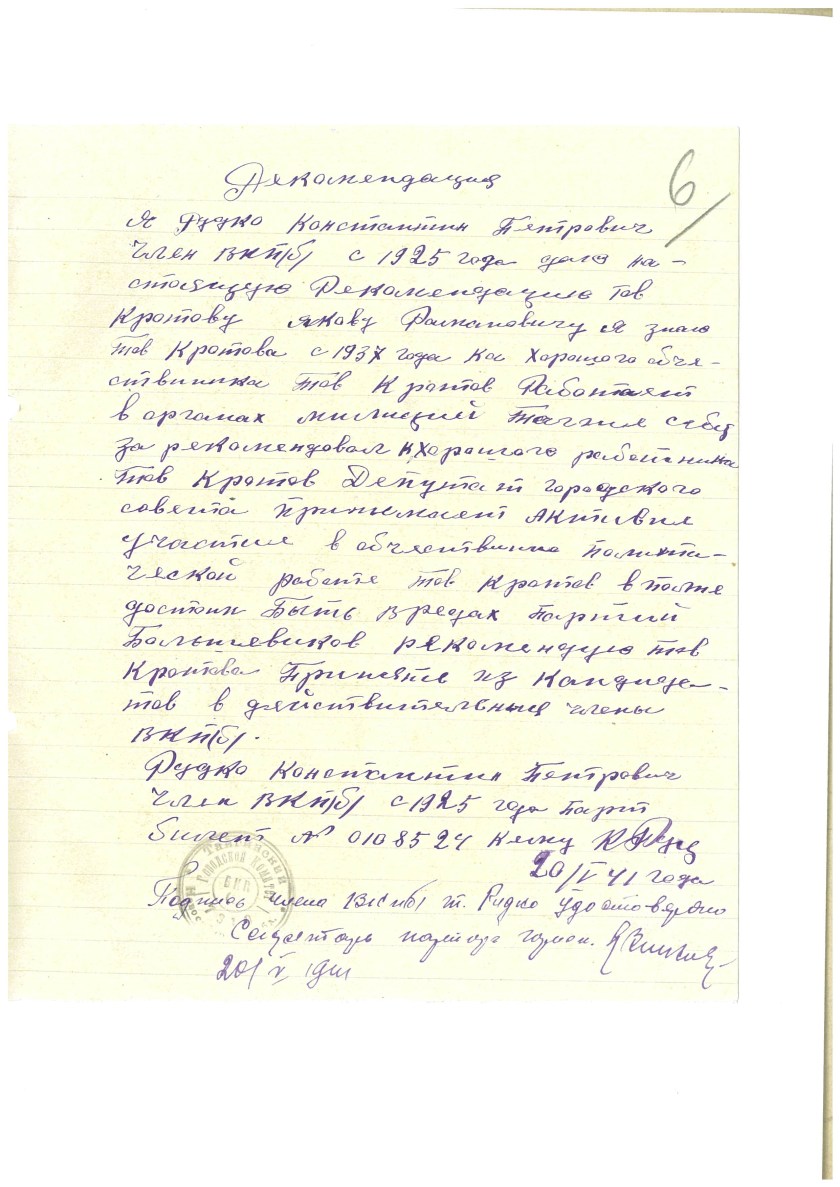 6
Рекомендация
Я Рудко Константин Петрович
член ВКП/б/ с 1925 года даю на-
стоящую Рекомендацию тов
Кротову Якову Рамановичу я знаю
тов Кротова с 1937 года ка хорошого обче-
ствиника тов Кротов Работает
в органах милиций тагжа себя
за рекомендовал к хорошого работника
тов Кротов Депутат городского
совета принимает Активня
участия в обчествинно полити-
ческой работе тов Кротов в полне
достоин Быть в редах партий
Большевиков рекомендую тов
Кротова Принять из Кандида-
тов в действительныи члены
ВКП/б/.
Рудко Константин Петрович
член ВКП/б/ с 1925 года парт
билет № 0108524
20/V 41 года
Подпись члена ВКП/б/ т. Рудко Удостоверяю
Секретарь
20/V 1941
Городской Комитет